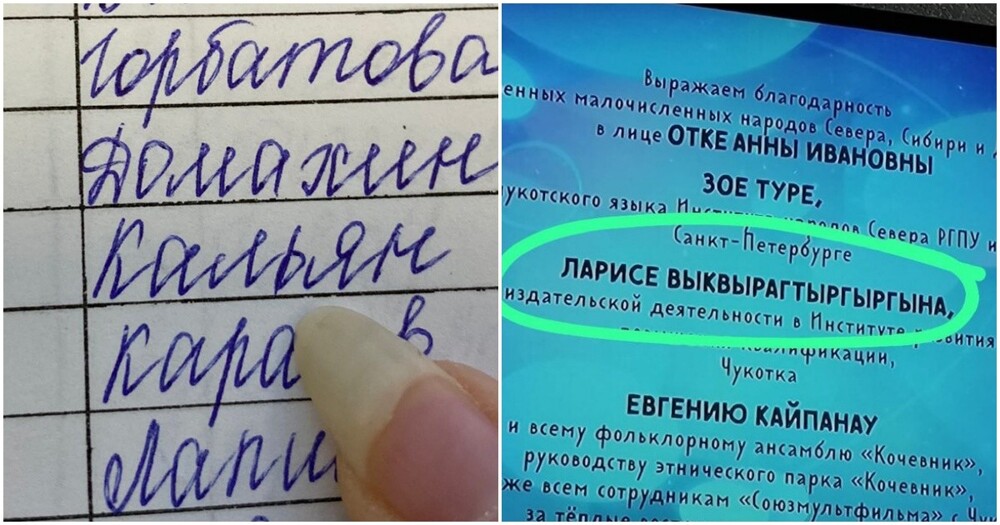 Горбатова
Домахин
Кальян
Лапш
Выражаем благодарность
енных малочисленных народов Севера, Сибири и
в лице ОТКЕ АННЫ ИВАНОВНЫ
ЗОЕ ТУРЕ,
укотского языка Института народов Севера РГПУ и
Санкт-Петербурге
ЛАРИСЕ ВЫКВЫРАГТЫРГЫРГЫНА,
издательской деятельности в Институте развития
квалификации,
Чукотка
ЕВГЕНИЮ КАЙПАНАУ
и всему фольклорному ансамблю «Кочевник»,
руководству этнического парка «Кочевник»,
же всем сотрудникам «Союзмультфильма» с
за тёплые